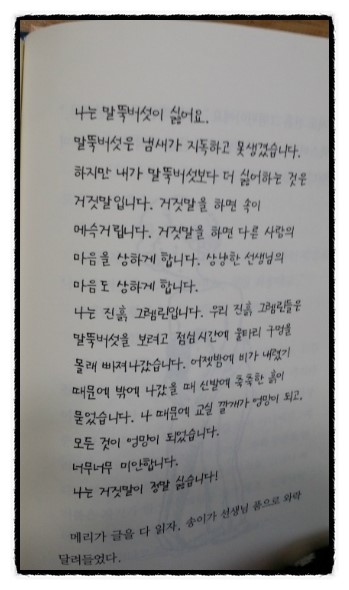 나는 말뚝버섯이 싫어요.
말뚝버섯은 냄새가 지독하고 못생겼습니다.
하지만 내가 말뚝버섯보다 더 싫어하는 것은
거짓말입니다. 거짓말을 하면 속이
메슥거립니다. 거짓말을 하면 다른 사람의
마음을 상하게 합니다. 상냥한 선생님의
마음도 상하게 합니다.
나는 진흙 그렘린입니다. 우리 진흙 그렘린들은
말뚝버섯을 보려고 점심시간에 울타리 구멍을
몰래 빠져나갔습니다. 어젯밤에 비가 내렸기
때문에 밖에 나갔을 때 신발에 축축한 흙이
묻었습니다. 나 때문에 교실 깔개가 엉망이 되고,
모든 것이 엉망이 되었습니다.
너무너무 미안합니다.
나는 거짓말이 정말 싫습니다!
메리가 글을 다 읽자, 송이가 선생님 품으로 와락
달려들었다.